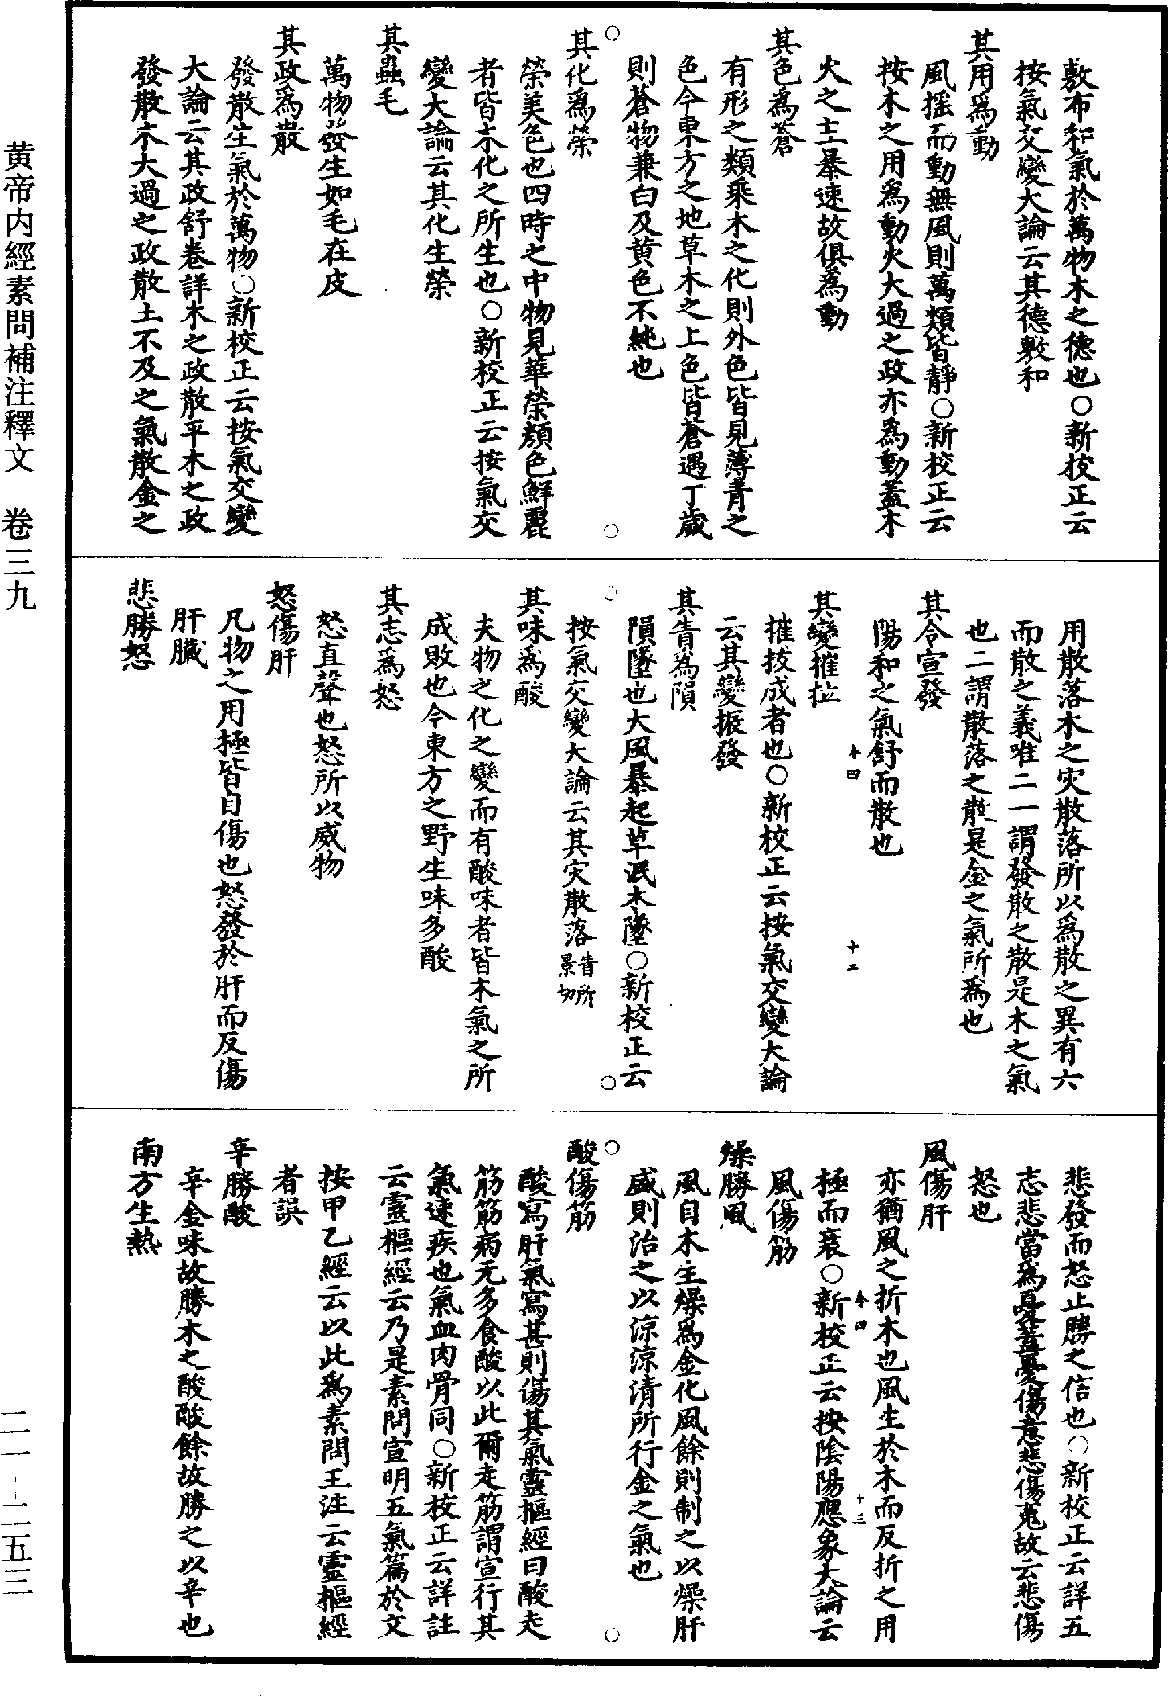 敷布和氣於萬物木之德也○新校正云
按氣交變大論云其德敷和
其用爲動
風摇而動無風則萬類皆靜○新校正云
按木之用爲動火大過之政亦爲動蓋木
火之主暴速故俱爲動
其色爲蒼
有形之類乘木之化則外色皆見薄青之
色今東方之地草木之上色皆蒼遇丁歲
則蒼物兼白及黄色不純也
其化爲榮
榮美色也四時之中物見華榮顏色鮮麗
者皆木化之所生也○新校正云按氣交
變大論云其化生榮
其蟲毛
萬物發生如毛在皮
其政爲散
發散生氣於萬物○新校正云按氣交變
大論云其政舒卷詳木之政散平木之政
發散木大過之政散土不及之氣散金之
用散落木之灾散落所以爲散之異有六
而散之義唯二一謂發散之散是木之氣
也二謂散落之散是金之氣所爲也
其令宣發
陽和之氣舒而散也
其變摧拉
摧拔成者也○新校正云按氣交變大論
云其變振發
其眚為隕
隕墜也大風暴起草泯木墜○新校正云
按氣交變大論云其灾散落眚所景切
其味爲酸
夫物之化之變而有酸味者皆木氣之所
成敗也今東方之野生味多酸
其志爲怒
怒直聲也怒所以威物
怒傷肝
凡物之用極皆自傷也怒發於肝而反傷
肝臟
悲勝怒
悲發而怒止勝之信也○新校正云詳五
志悲當爲憂蓋憂傷意悲傷䰟故云悲傷
怒也
風傷肝
亦猶風之折木也風生於木而反折之用
極而衰○新校正云按陰陽應象大論云
風傷筋
燥勝風
風自木主燥爲金化風餘則制之以燥肝
盛則治之以涼涼清所行金之氣也
酸傷筋
酸寫肝氣寫甚則傷其氣靈樞經曰酸走
筋筋病无多食酸以此爾走筋謂宣行其
氣速疾也氣血肉骨同○新校正云詳註
云靈樞經云乃是素問宣明五氣篇於文
按甲乙經云以此爲素問王注云靈樞經
者誤
辛勝酸
辛金味故勝木之酸酸餘故勝之以辛也
南方生熱
本四
十二
本四
十三
黄帝内經素問補注釋文　卷三九
二一-二五三